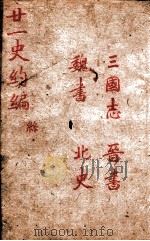 三國志 晉書
魏書 北史
廿一史約編 絲